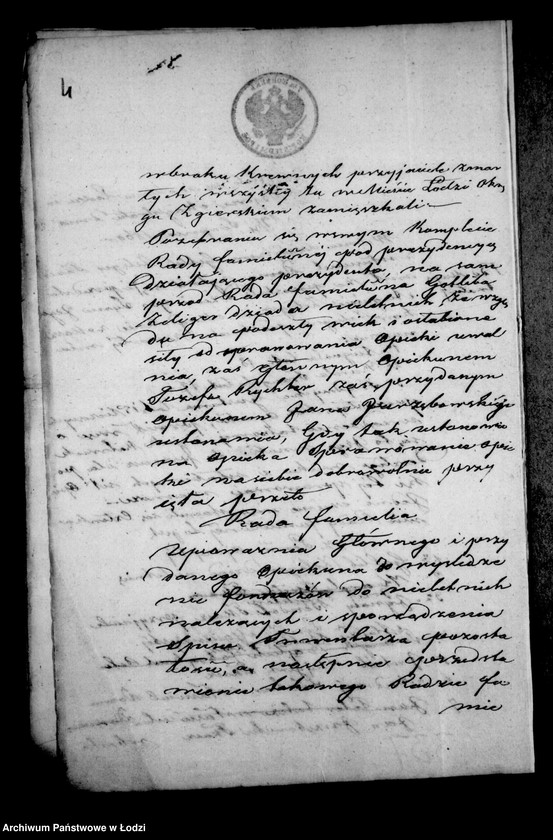 4
w braku Krewnych przyjaciele zmar
łych wszyscy tu w Mieście Łodzi Okrę
gu Zgierskim zamieszkali
Po zebraniu się w swym Komplecie
Rady familijnej pod prezydencyą
działającego prezydenta, na sam
przód Rada familijna Gotliba
Zeliger dziada nieletnich ze wzglę
du na podeszły wiek i osłabione
siły od sprawowania opieki uwal
nia, zaś głównym Opiekunem
Józefa Rychter zaś przydanym
opiekunem Jana
ustanawia, Gdy tak ustanowio
na opieka sprawowanie opie
ki na siebie dobrowolnie przy
jęła przeto
Rada familia
Upoważnia Głównego i przy
danego Opiekuna do
nie funduszów do nieletnich
należących i sporządzenia
Spisu Inwentarza pozosta
łości, a następnie przedsta
wienie takowego Radzie fa
mie
Archiwum Państwowe w Łodzi